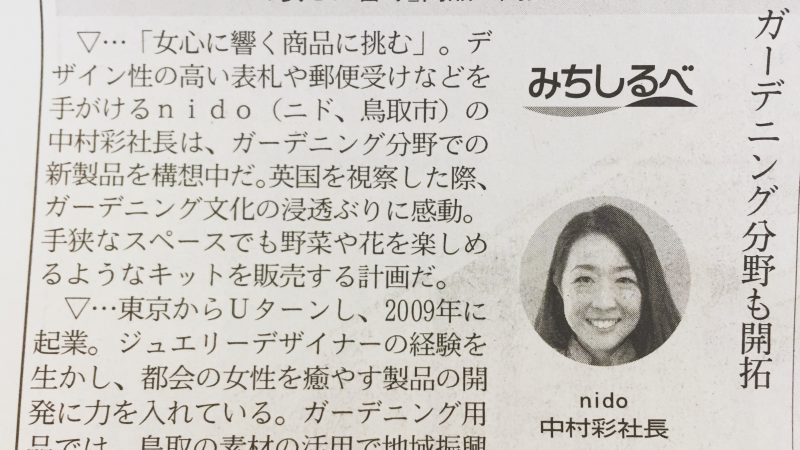 ガーデニング分野も開拓
みちしるべ
▽…「女心に響く商品に挑む」。デ
ザイン性の高い表札や郵便受けなどを
手がけるｎｉｄｏ（ニド、鳥取市）の
中村彩社長は、ガーデニング分野での
新製品を構想中だ。英国を視察した際、
ガーデニング文化の浸透ぶりに感動。
手狭なスペースでも野菜や花を楽しめ
るようなキットを販売する計画だ。
▽…東京からＵターンし、2009年に
起業。ジュエリーデザイナーの経験を
生かし、都会の女性を癒やす製品の開
発に力を入れている。ガーデニング用
品では、鳥取の素材の活用で地域振興
nido
中村彩社長